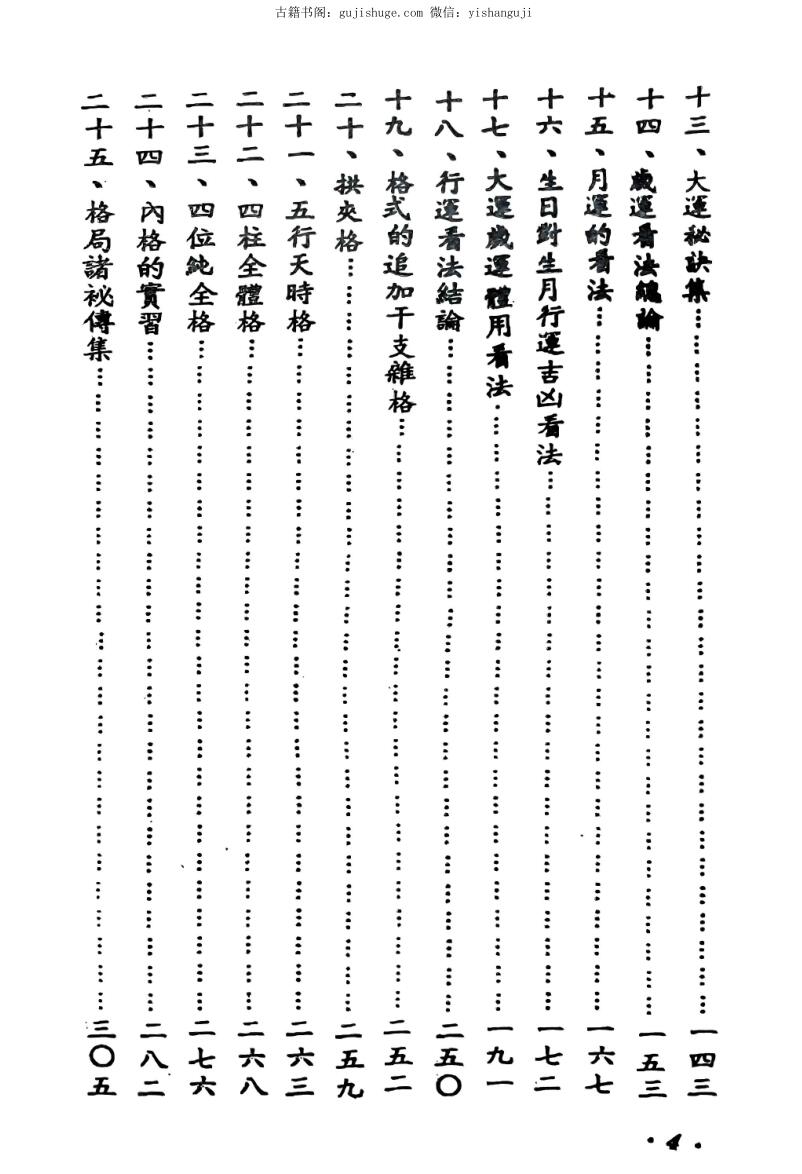 古籍书阁：gujishuge.com 微信：yishanguji
十三、大運秘訣集……一四三
十四、歲運看法總論……一五三
十五、月運的看法……一六七
十六、生日對生月行運吉凶看法……一七二
十七、大運歲運體用看法……一九一
十八、行運看法結論……二五〇
十九、格式的追加干支雜格……二五二
二十、拱夾格……二五九
二十一、五行天時格……二六三
二十二、四柱全體格……二六八
二十三、四位純全格……二七六
二十四、內格的實習……二八二
二十五、格局諸祕傳集……三〇五
·4·